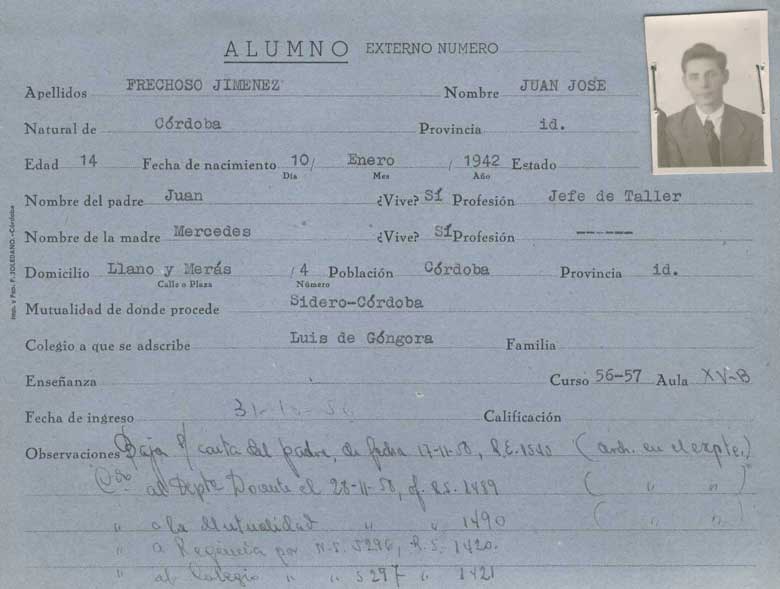 ALUMNO EXTERNO NUMERO
Apellidos FRECHOSO JIMENEZ Nombre JUAN JOSE
Natural de Córdoba Provincia id.
Edad 14 Fecha de nacimiento 10/ Enero / 1942 Estado
Día Mes Año
Nombre del padre Juan ¿Vive? SÍ Profesión Jefe de Taller
Nombre de la madre Mercedes ¿Vive? SÍ Profesión ------
Domicilio Llano y Merás /4 Población Córdoba Provincia id.
Calle o Plaza Número
Mutualidad de donde procede Sidero-Córdoba
Colegio a que se adscribe Luis de Góngora Familia
Enseñanza Curso 56-57 Aula XV-B
Fecha de ingreso 31-10-56 Calificación
Observaciones Baja s/ carta del padre, de fecha 17-11-58, R.E. 1540 (arch. en el expte.)
al Depte Docente el 28-11-58, of. R.S. 1489 ( " " )
" a la Mutualidad " " 1490 ( " " )
" a Regencia por N.S. 5296, R.S. 1420.
" al Colegio " " 5297 " 1421
Imp. y Pap. F. TOLEDANO.-Córdoba